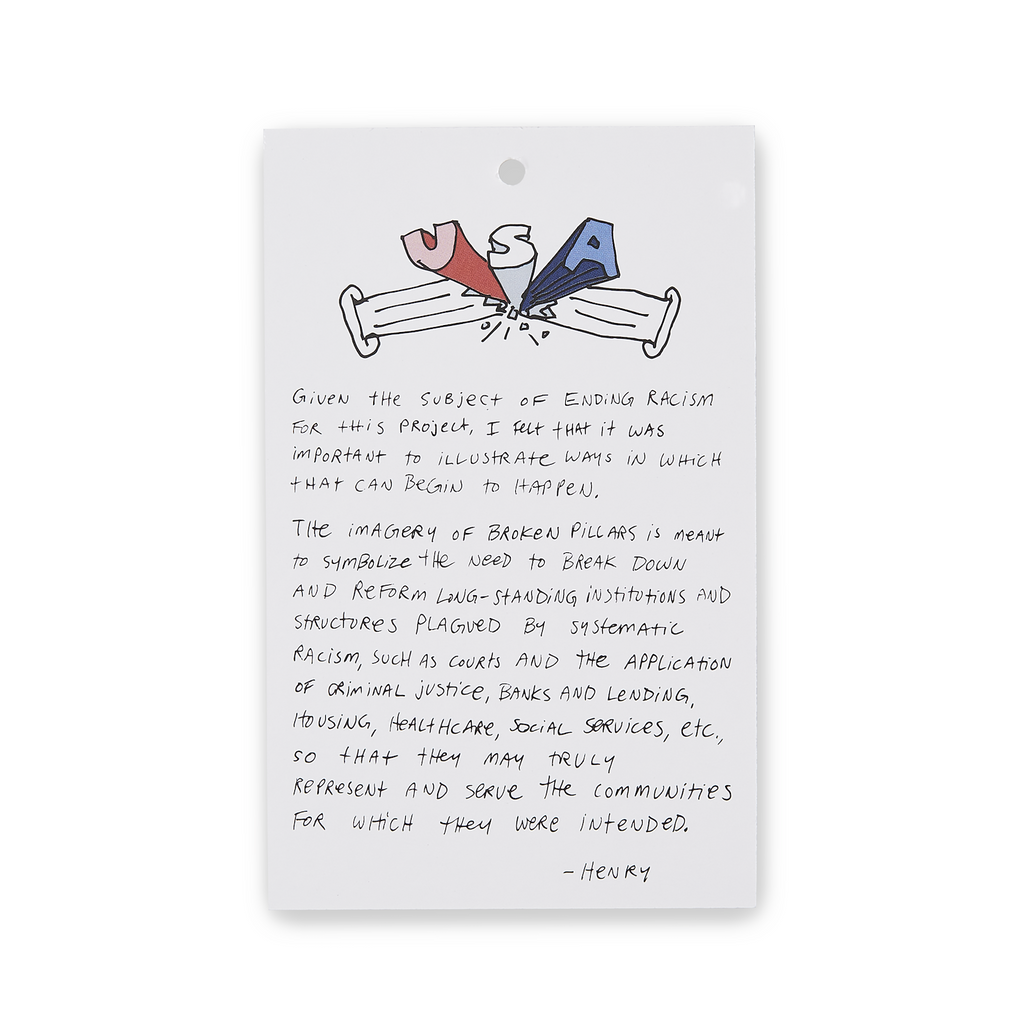 USA
GIVEN THE SUBJECT OF ENDING RACISM
FOR THIS PROJECT, I FELT THAT IT WAS
IMPORTANT TO ILLUSTRATE WAYS IN WHICH
THAT CAN BEGIN TO HAPPEN.
THE IMAGERY OF BROKEN PILLARS IS MEANT
TO SYMBOLIZE THE NEED TO BREAK DOWN
AND REFORM LONG-STANDING INSTITUTIONS AND
STRUCTURES PLAGUED BY SYSTEMATIC
RACISM, SUCH AS COURTS AND THE APPLICATION
OF CRIMINAL JUSTICE, BANKS AND LENDING,
HOUSING, HEALTHCARE, SOCIAL SERVICES, ETC.,
SO THAT THEY MAY TRULY
REPRESENT AND SERVE THE COMMUNITIES
FOR WHICH THEY WERE INTENDED.
-HENRY